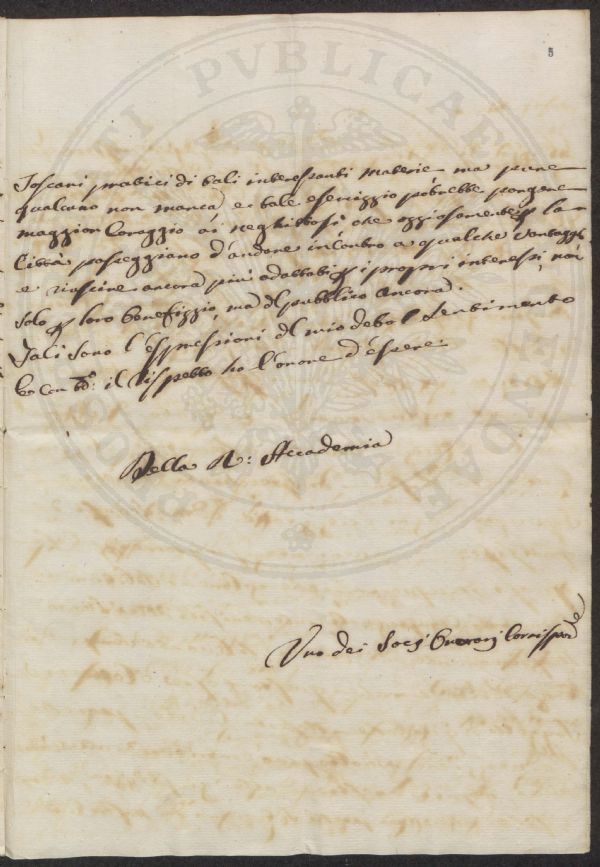 5
Toscani pratici di tali interessanti materie ma pure
qualcuno non manca, e tale esercizzio potrebbe porgere
maggior Coraggio ai neghittosi che oziosamente p la
Città passeggiano d'andare incontro a qualche Vantaggio
e riuscire ancora più adattabili p i propri interessi, non
Solo p loro benefizzio, ma dl pubblico ancora.
Tali Sono l'espressioni dl mio debol Sentimento
e con to: il rispetto ho l'onore d'essere
Della R: Accademia
Uno dei Socj Onorarj Corrispond